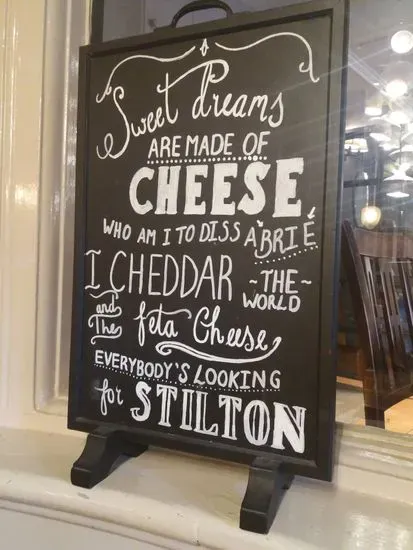 Sweet dreams
ARE MADE OF
CHEESE
WHO AM I TO DISS A BRIE
I CHEDDAR ~THE~ WORLD
and The feta Cheese
EVERYBODY'S LOOKING
for STILTON